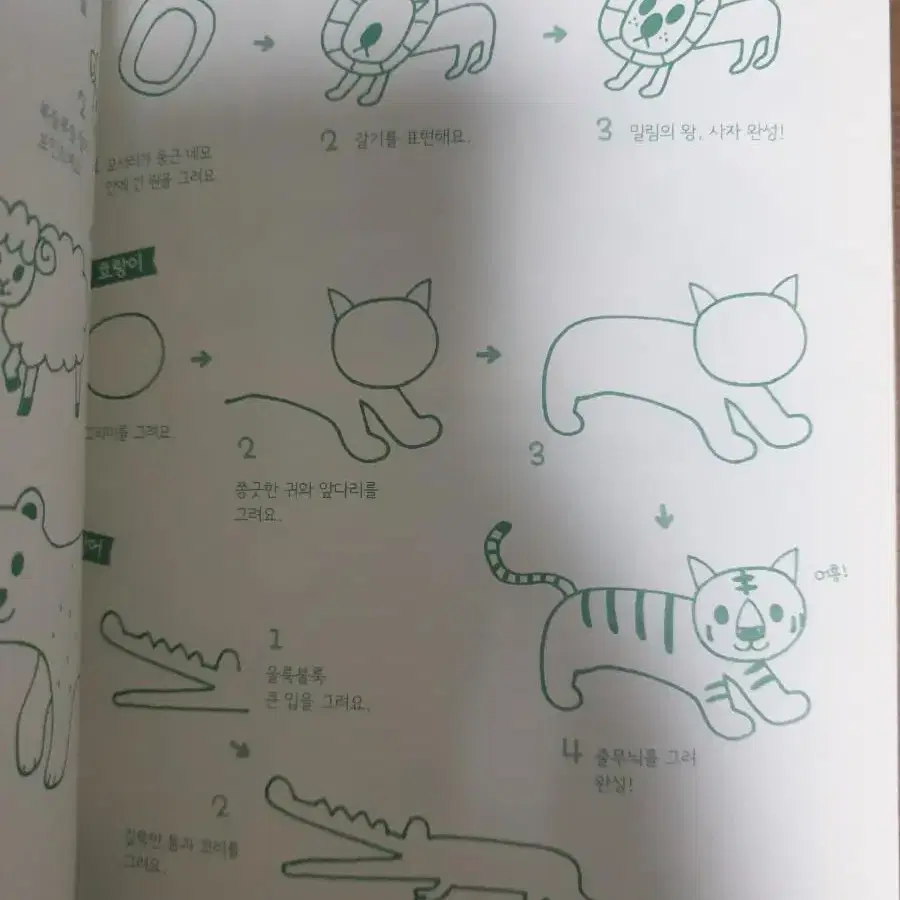 1 모서리가 둥근 네모
안에 긴 원을 그려요.
2 갈기를 표현해요.
3 밀림의 왕, 사자 완성!
호랑이
그려요.
2
쫑긋한 귀와 앞다리를
그려요.
3
어흥!
4 줄무늬를 그려
완성!
어
1
울룩불룩
큰 입을 그려요.
2
길쭉한 몸과 꼬리를
그려요.
2